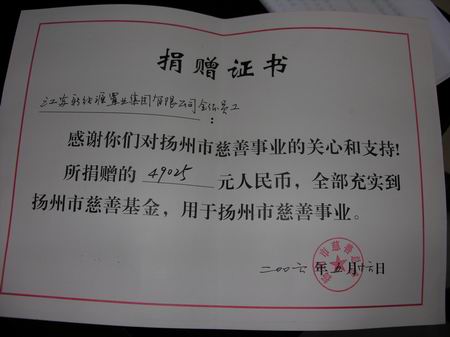 捐赠证书
江苏新能源置业集团有限公司全体员工
：
感谢你们对扬州市慈善事业的关心和支持！
所捐赠的 49025 元人民币，全部充实到
扬州市慈善基金，用于扬州市慈善事业。
二〇〇六年五月十六日